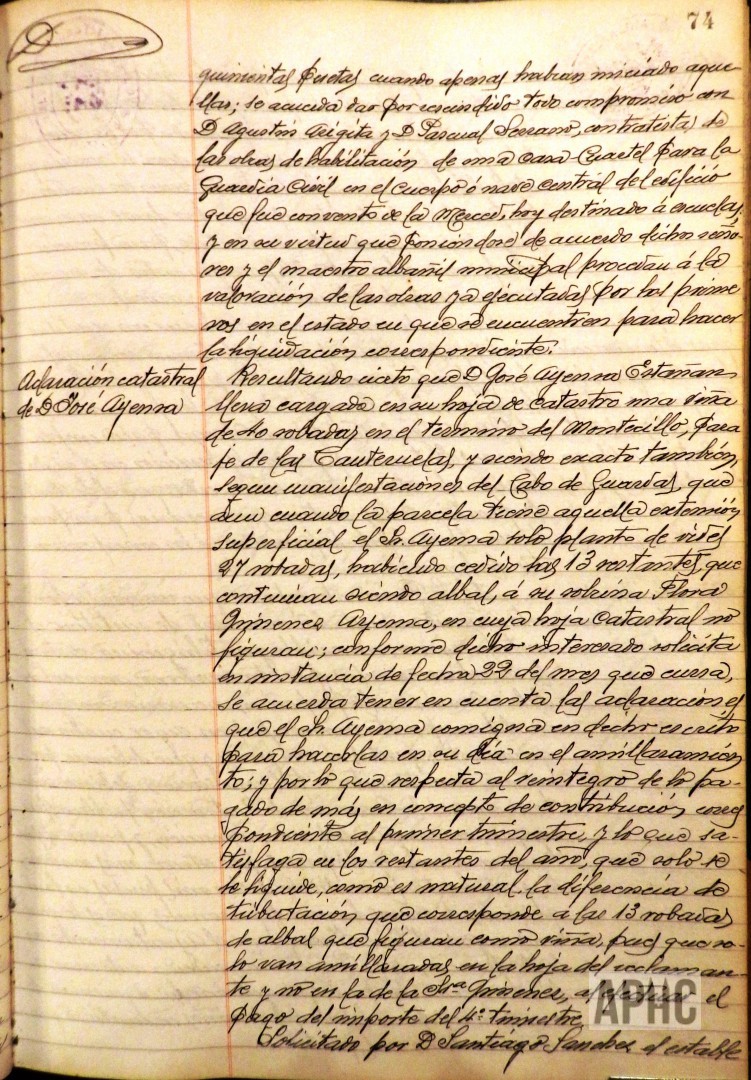 74
quinientas pesetas cuando apenas habian iniciado aque-
llas; se acuerda dar por rescindido todo compromiso con
D Agustín Arigita y D Pascual Serrano, contratistas de
las obras de habilitación de una casa-Cuartel para la
Guardia Civil en el cuerpo ó nave central del edificio
que fue convento de la Merced, hoy destinado á escuelas,
y en su virtud que poniendose de acuerdo dichos seño-
res y el maestro albañil municipal procedan á la
valoración de las obras ya ejecutadas por los prime-
ros en el estado en que se encuentren para hacer
la liquidación correspondiente.
Aclaración catastral
de D José Ayensa
Resultando cierto que D José Ayensa Estañan
lleva cargado en su hoja de catastro una viña
de 40 robadas en el termino del Montecillo, para-
je de las Canteruelas, y siendo exacto tambien,
segun manifestaciones del Cabo de Guardas, que
aun cuando la parcela tiene aquella extensión
superficial el Sr. Ayensa solo planto de vides
27 robadas, habiendo cedido las 13 restantes, que
continuan siendo albal, á su sobrina Flora
Gimenez Ayensa, en cuya hoja catastral no
figuran; conforme dicho interesado solicita
en instancia de fecha 22 del mes que cursa,
se acuerda tener en cuenta las aclaraciones
que el Sr. Ayensa consigna en dicho escrito
para hacerlas en su día en el amillaramien-
to; y por lo que respecta al reintegro de lo pa-
gado de más en concepto de contribución corres
pondiente al primer trimestre, y lo que sa-
tisfaga en los restantes del año, que solo se
le liquide, como es natural, la diferencia de
tributación que corresponde á las 13 robadas
de albal que figuran como viña, pues que so-
lo van amillaradas en la hoja del reclaman-
te y no en la de la Sra Gimenez, al efectuar el
pago del importe del 4º trimestre
Solicitado por D Santiago Sanchez el estable
APHC